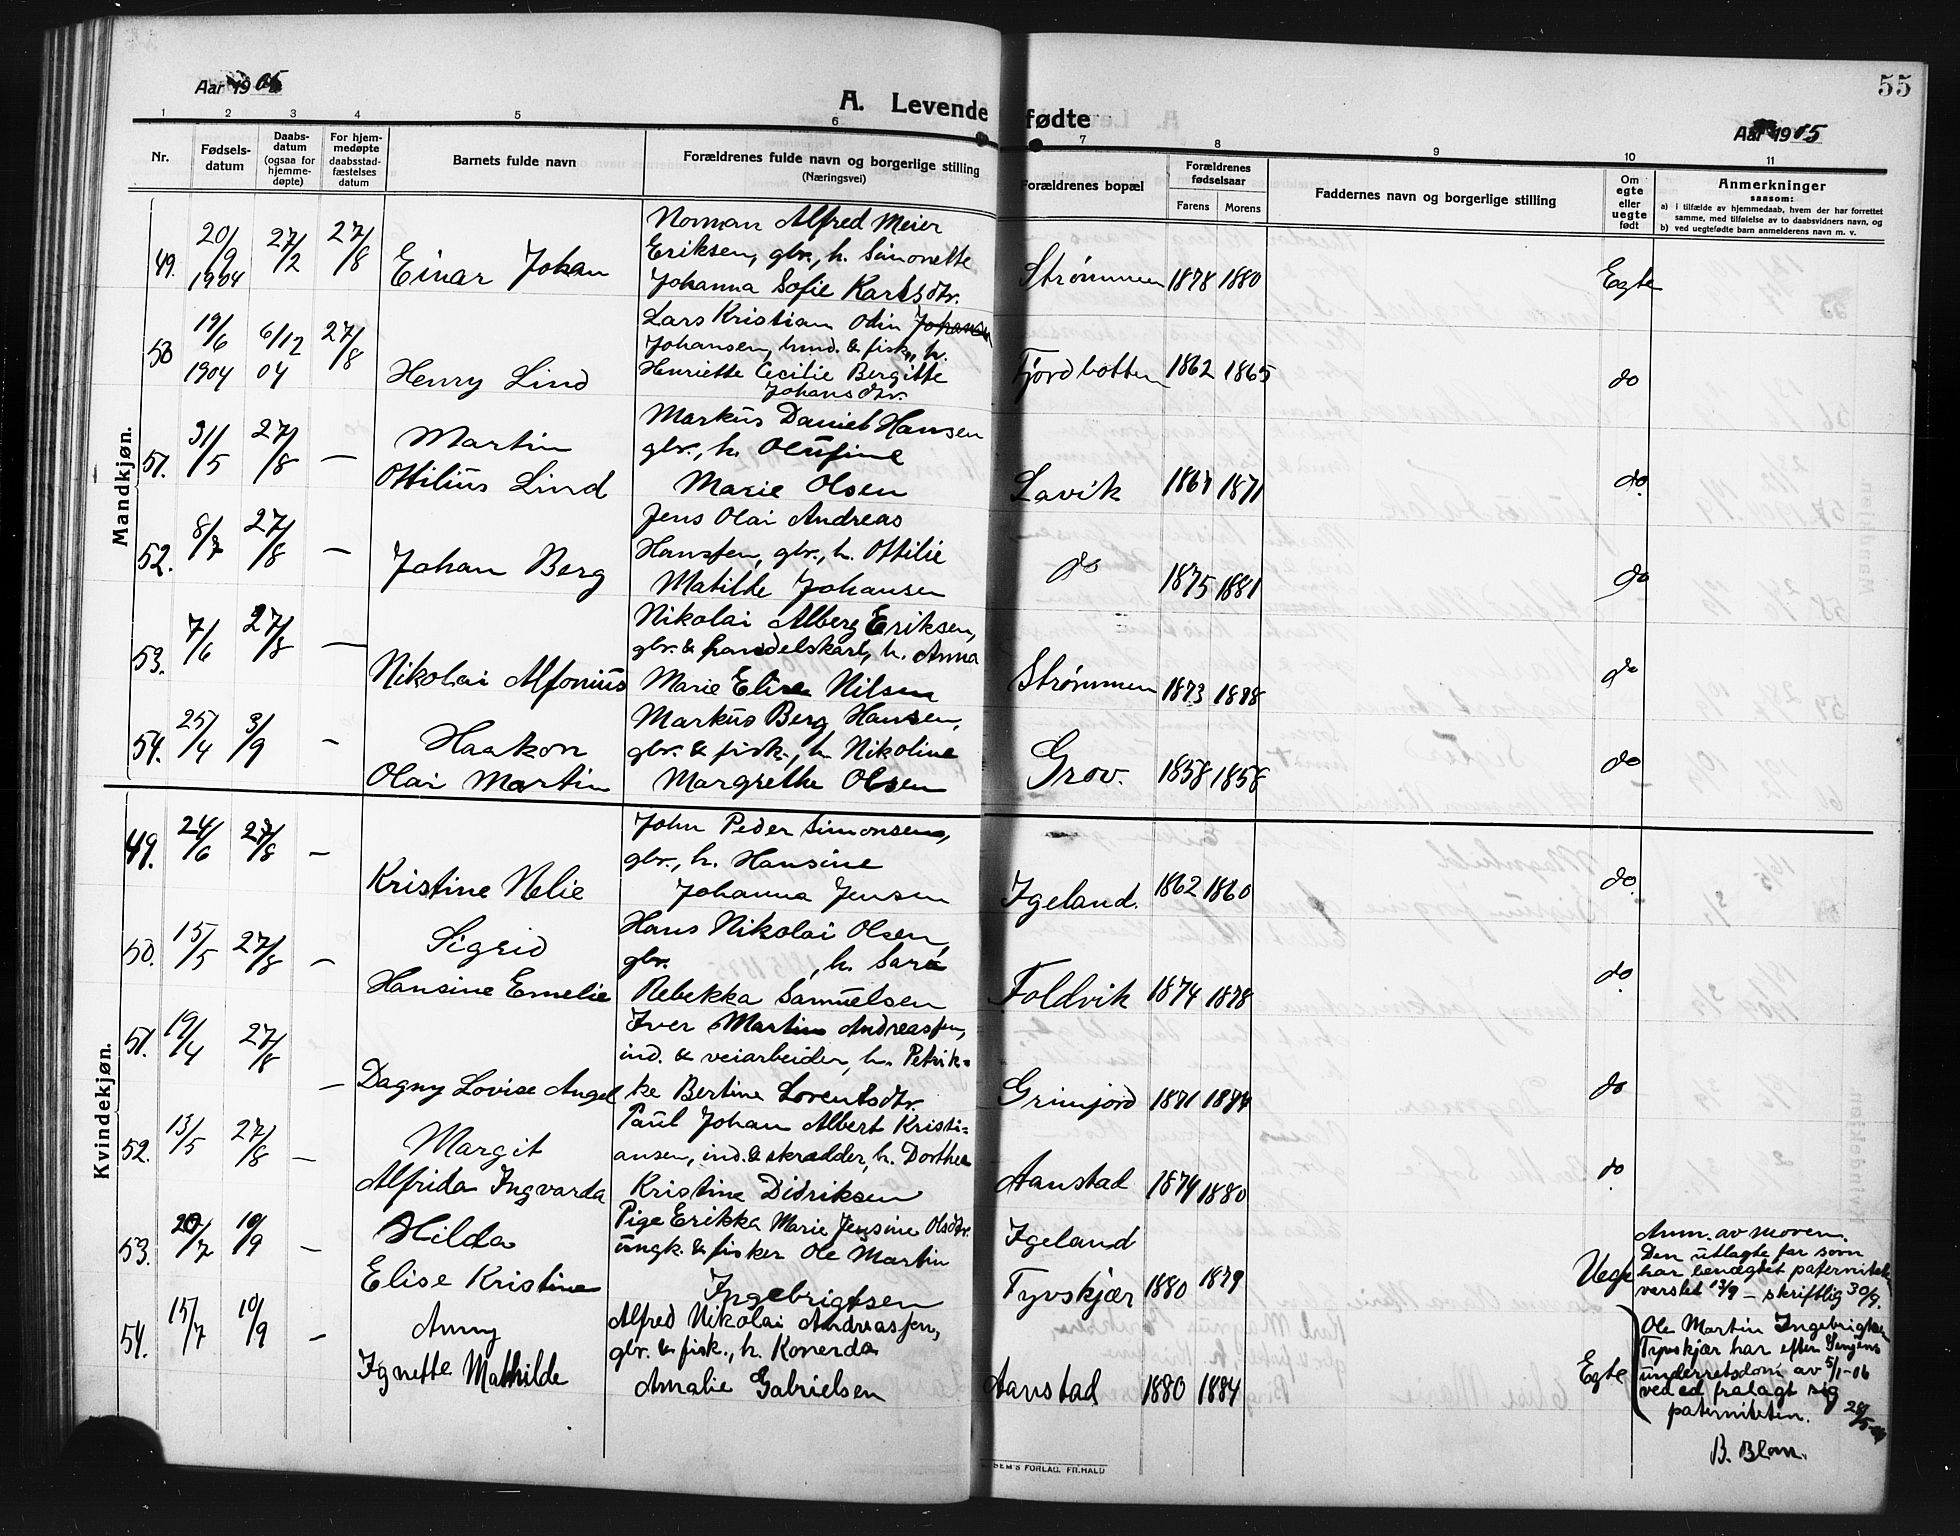 Aar 1905
A. Levende fødte
Aar 1905
55
1 2 3 4 5 6 7 8 9 10 11
Nr.
Fødsels-
datum
Daabs-
datum
(ogsaa for
hjemme-
døpte)
For hjem-
medøpte
daabsstad-
fæstelses
datum
Barnets fulde navn
Forældrenes fulde navn og borgerlige stilling
(Næringsvei)
Forældrenes bopæl
Forældrenes
fødselsaar
Farens Morens
Faddernes navn og borgerlige stilling
Om
egte
eller
uegte
født
Anmerkninger
saasom:
a) i tilfælde av hjemmedaab, hvem der har forrettet
samme, med tilføielse av to daabsvidners navn, og
b) ved uegtefødte barn anmelderens navn m. v.
Mandkjøn.
49. 20/9 1904 27/2 27/8 Einar Johan
Norman Alfred Meier
Eriksen, gbr., h. Simonette
Johanna Sofie Karlsdtr.
Strømmen 1878 1880 Egte
50 19/6 1904 6/12 04 27/8 Henry Lind
Lars Kristian Odin Johansen
Johansen, husm. & fisk., h.
Henriette Cecilie Bergitte
Johansdtr.
Fjordbotten 1862 1865 do
51. 31/5 27/8 — Martin
Ottilius Lind
Markus Daniel Hansen
gbr., h. Olufine
Marie Olsen
Lavik 1867 1871 do.
52. 8/7 27/8 — Johan Berg
Jens Olai Andreas
Hanssen, gbr., h. Ottilie
Matilde Johansen
do 1875 1881 do
53. 7/6 27/8 — Nikolai Alfonius
Nikolai Alberg Eriksen,
gbr. & handelskarl, h. Anna
Marie Elise Nilsen
Strømmen 1873 1888 do
54. 25/4 3/9 — Haakon
Olai Martin
Markus Berg Hansen,
gbr. & fisk., h. Nikoline
Margrethe Olsen
Grov. 1858 1858 do
Kvindekjøn.
49. 24/6 27/8 — Kristine Nelie
John Peder Simonsen,
gbr., h. Hansine
Johanna Jensen
Igeland. 1862 1860 do.
50. 15/5 27/8 — Sigrid
Hansine Emelie
Hans Nikolai Olsen,
gbr. , h. Sara
Rebekka Samuelsen
Foldvik 1874 1878 do.
51. 19/4 27/8 — Dagny Lovise Angel
Iver Martin Andreassen,
ind. & veiarbeider, h. Petrik-
ke Bertine Lorentsdtr.
Grimjord 1871 1874 do
52. 13/5 27/8 — Margit
Alfrida Ingvarda
Paul Johan Albert Kristi-
ansen, ind. & skrædder, h. Dorthea
Kristine Didriksen
Aanstad 1879 1880 do
53. 20/7 10/9 — Hilda
Elise Kristine
Pige Erikka Marie Jensine Olsdtr.
ungk. & fisker Ole Martin
Ingebrigtsen
Igeland
Tyvskjær 1880 1879 Uegte
Anm. av moren.
Den utlagte far som
har benægtet paterniteten
varslet 13/9 — skriftlig 30/9.
Ole Martin Ingebrigtsen
Tyvskjær har efter Senjens
underretsdom av 5/1-06
ved ed fralagt sig
paterniteten.
B. Blom.
54. 15/7 10/9 — Anny
Ignette Mathilde
Alfred Nikolai Andreassen,
gbr. & fisk., h. Konerda
Amalie Gabrielsen
Aanstad 1880 1884 Egte
SEM'S FORLAG. FR. HALD